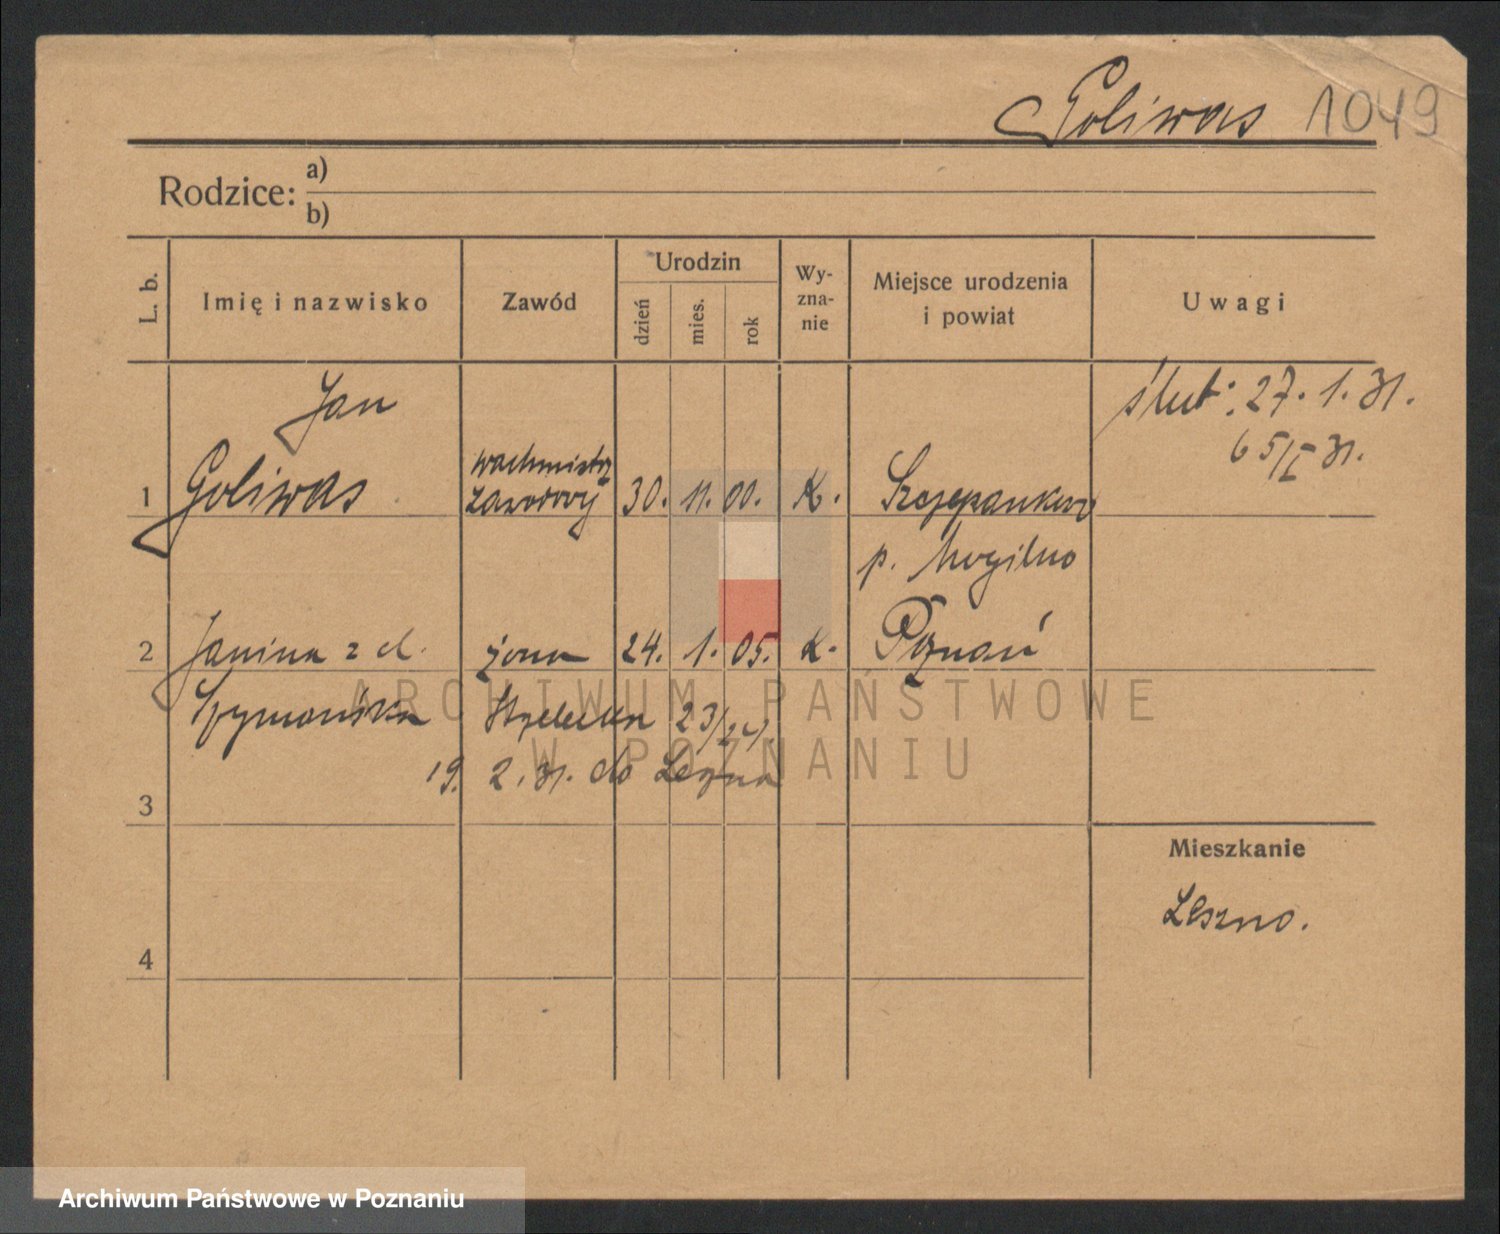 Goliwas 1049
Rodzice: a)
b)
L. b.
Imię i nazwisko
Zawód
Urodzin
dzień
mies.
rok
Wy-
zna-
nie
Miejsce urodzenia
i powiat
Uwagi
ślub: 27. 1. 31.
65/I 31.
Jan
1 Goliwas
wachmistrz
zawodowy
30. 11. 00. K.
p. Mogilno
2 Janina z d. żona 24. 1. 05. K. Poznań
Szymańska Strzelecka 23/
19. 2. 31. do Leszna
3
4
Mieszkanie
Leszno.
ARCHIWUM PAŃSTWOWE
W POZNANIU
Archiwum Państwowe w Poznaniu